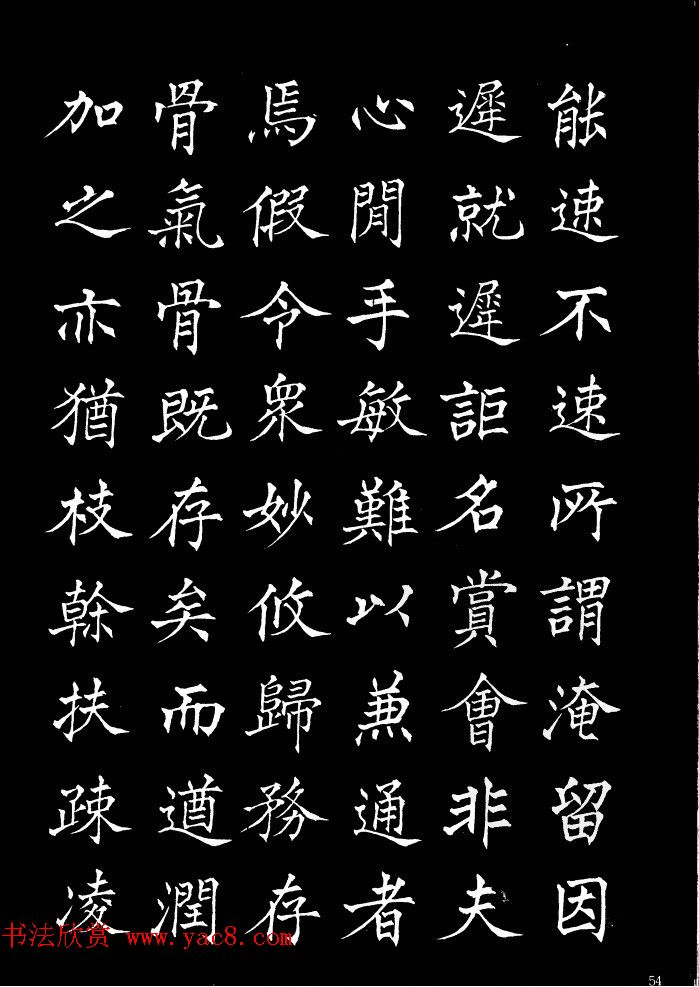 能速不速所謂淹留因
遲就遲詎名賞會非夫
心閒手敏難以兼通者
焉假令衆妙攸歸務存
骨氣骨既存矣而遒潤
加之亦猶枝幹扶疎凌
书法欣赏 www.yac8.com
54